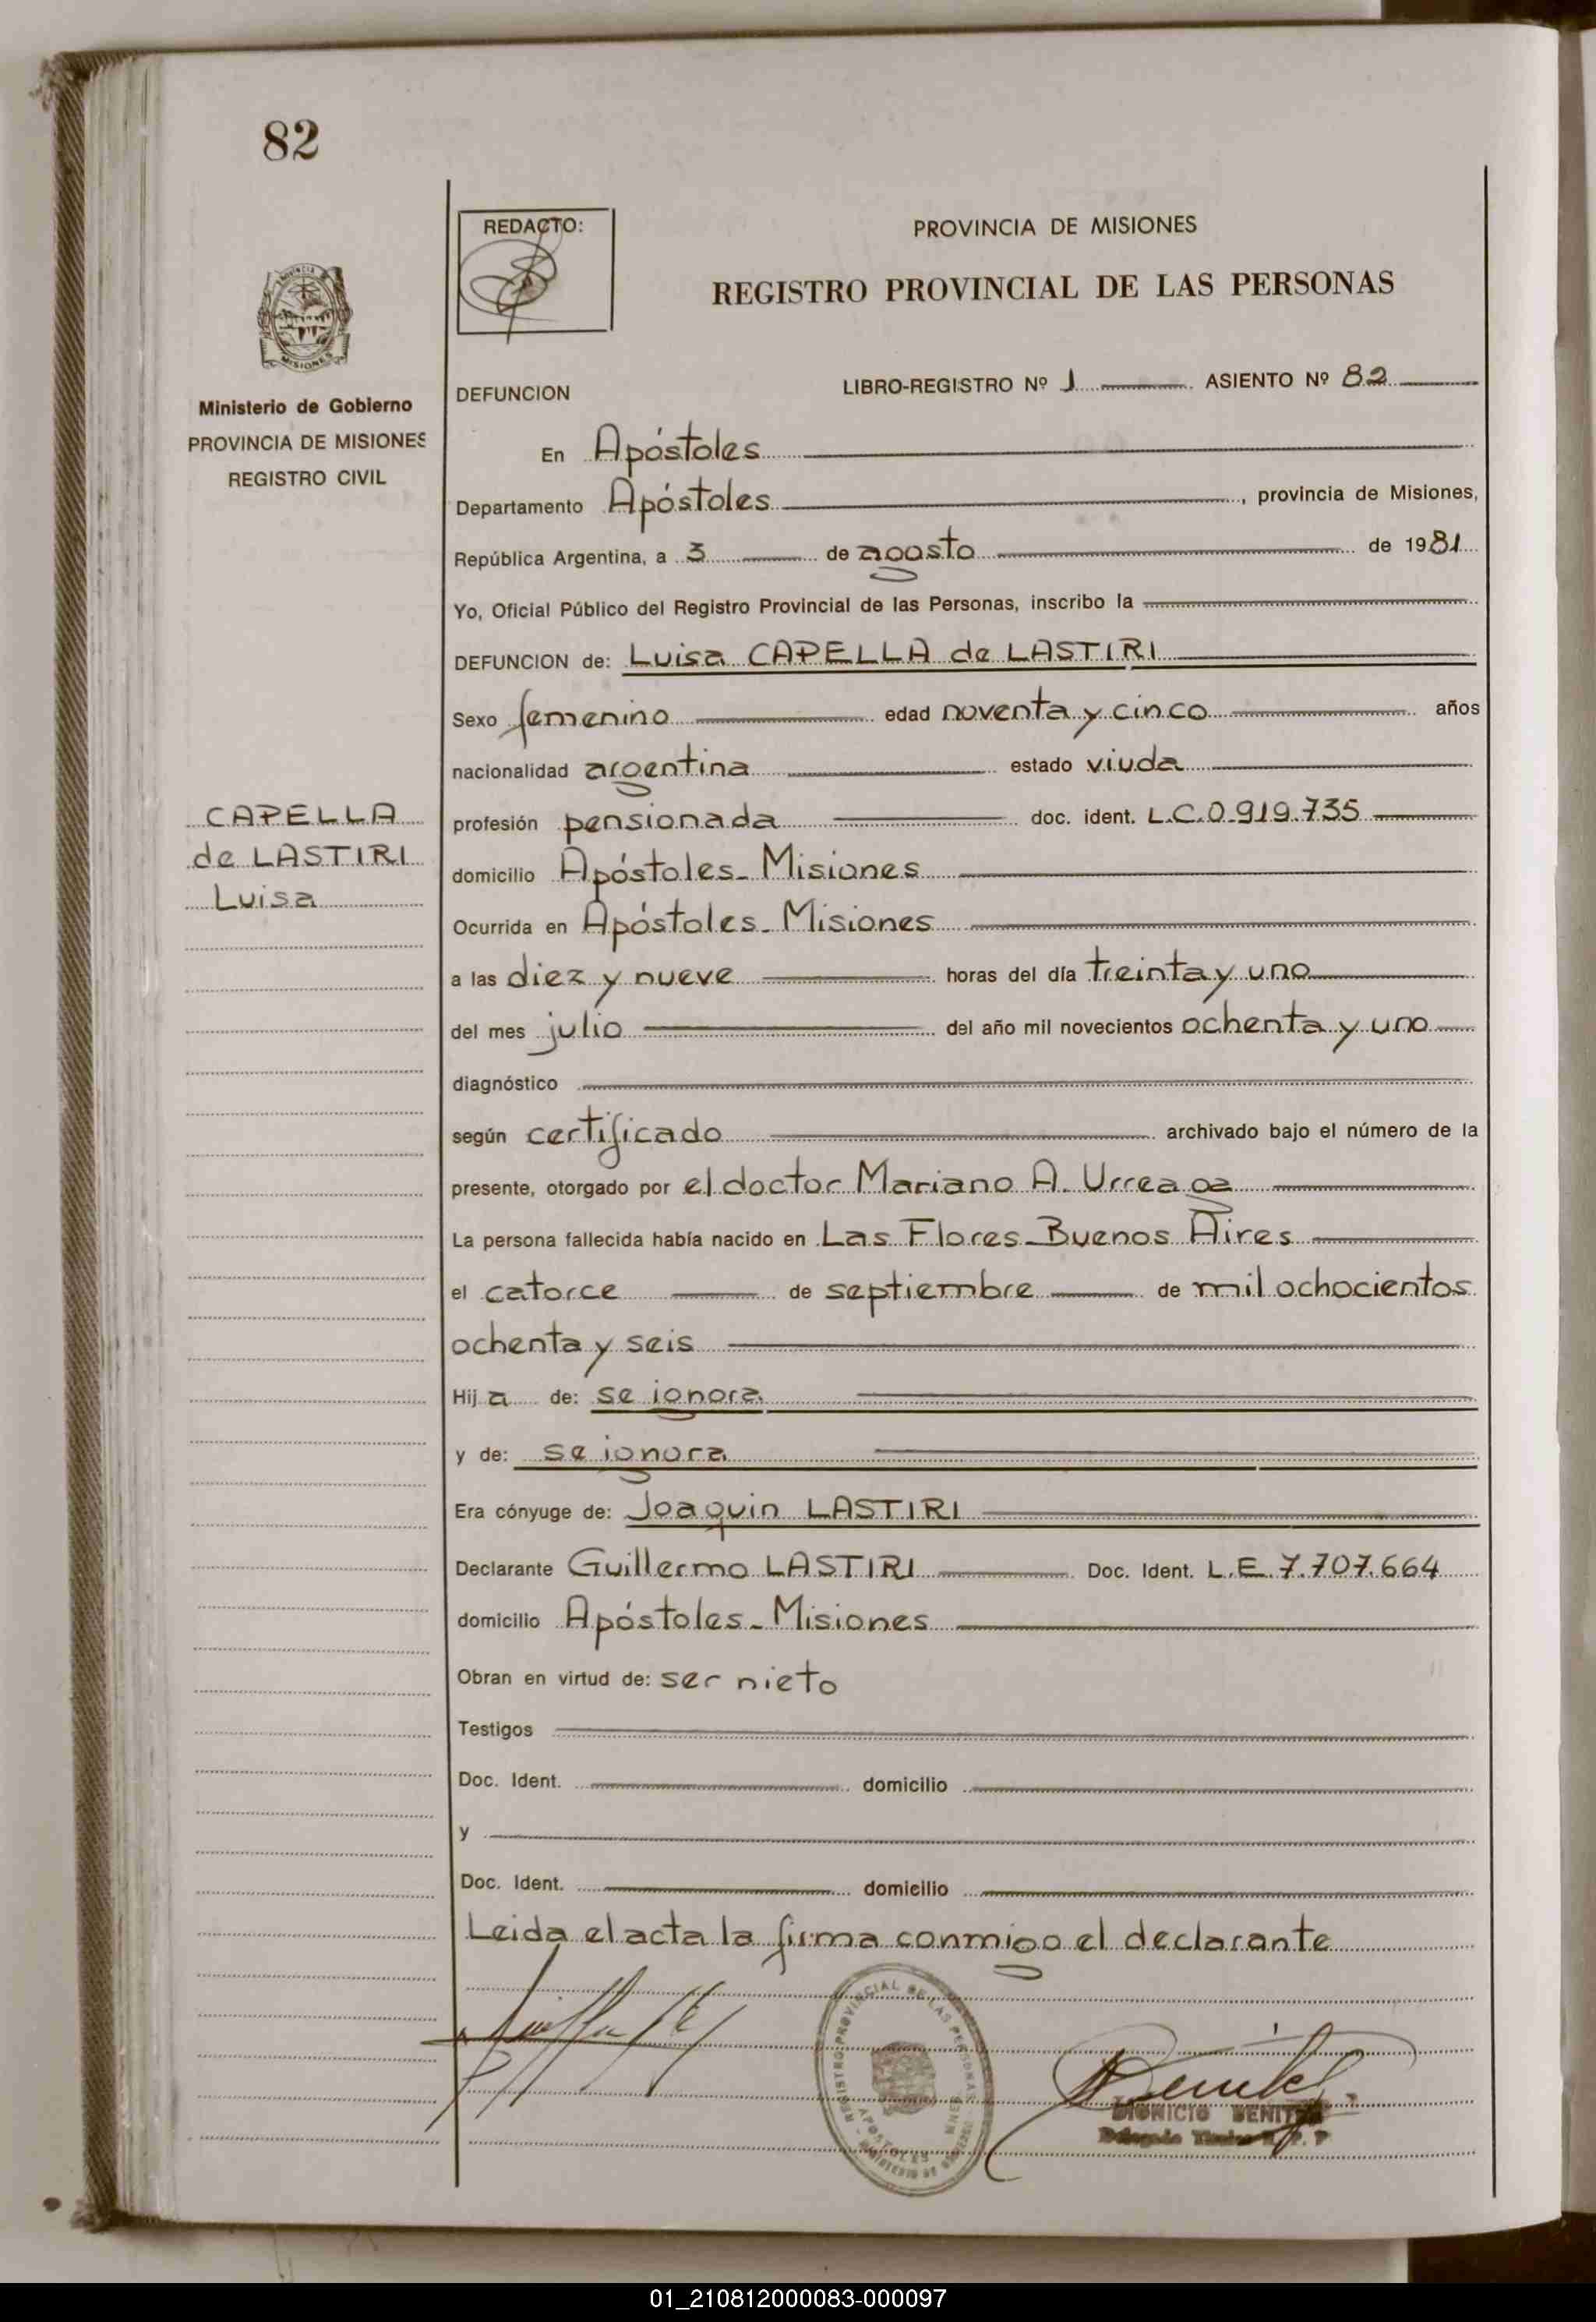 82
REDACTO:
PROVINCIA DE MISIONES
REGISTRO PROVINCIAL DE LAS PERSONAS
MISIONES
Ministerio de Gobierno
PROVINCIA DE MISIONES
REGISTRO CIVIL
DEFUNCION LIBRO-REGISTRO Nº 1 ASIENTO Nº 82
En Apóstoles
Departamento Apóstoles, provincia de Misiones,
República Argentina, a 3 de agosto de 1981
Yo, Oficial Público del Registro Provincial de las Personas, inscribo la
DEFUNCION de: Luisa CAPELLA de LASTIRI
Sexo femenino edad noventa y cinco años
nacionalidad argentina estado viuda
CAPELLA
de LASTIRI
Luisa
profesión pensionada doc. ident. L.C.0.919.735
domicilio Apóstoles_ Misiones
Ocurrida en Apóstoles_ Misiones
a las diez y nueve horas del día treinta y uno
del mes julio del año mil novecientos ochenta y uno
diagnóstico
según certificado archivado bajo el número de la
presente, otorgado por el doctor Mariano A. Urreaga
La persona fallecida había nacido en Las Flores_Buenos Aires
el catorce de septiembre de mil ochocientos
ochenta y seis
Hija de: se ignora
y de: se ignora
Era cónyuge de: Joaquin LASTIRI
Declarante Guillermo LASTIRI Doc. Ident. L.E.7.707.664
domicilio Apóstoles_ Misiones
Obran en virtud de: ser nieto
Testigos
Doc. Ident. domicilio
y
Doc. Ident. domicilio
Leida el acta la firma conmigo el declarante
REGISTRO PROVINCIAL DE LAS PERSONAS
APOSTOLES
DIONICIO BENITEZ
01_210812000083-000097